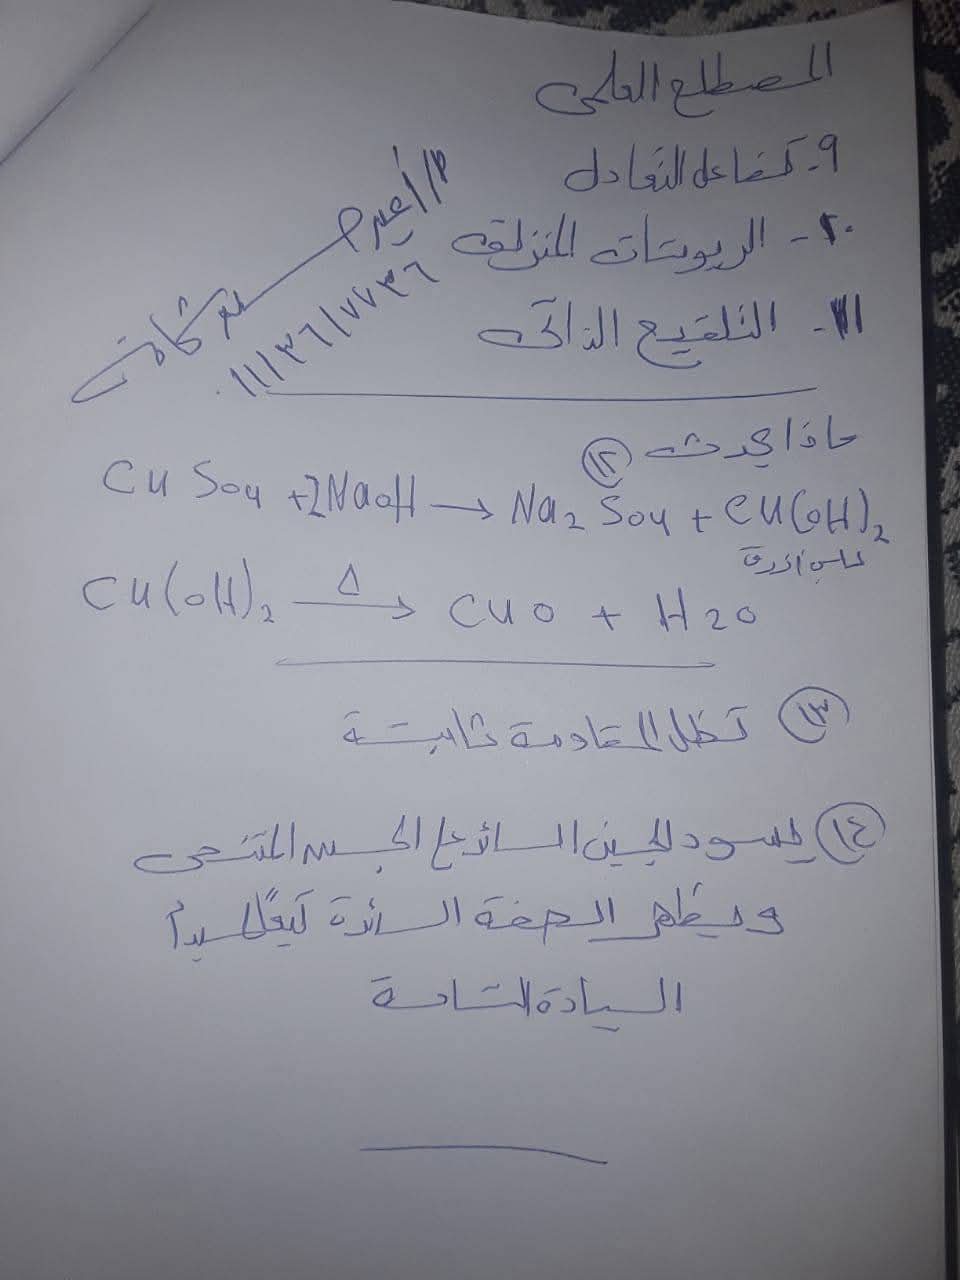 المصطلح العلمى
٩- تفاعل التعادل
١٠- الريوستات المنزلق
١١- التلقيح الذاتى
م/أميرة
٠١١١٣٦١٧٧٣٦
ماذا يحدث ١٢
CuSo4 + 2NaoH → Na2So4 + Cu(oH)2
أزرق
Cu(oH)2 —Δ→ CuO + H2O
١٣ تظل المقاومة ثابتة
١٤ يسود الجين السائد على الجين المتنحى
ويظهر الصفة السائدة تبعًا لمبدأ
السيادة التامة